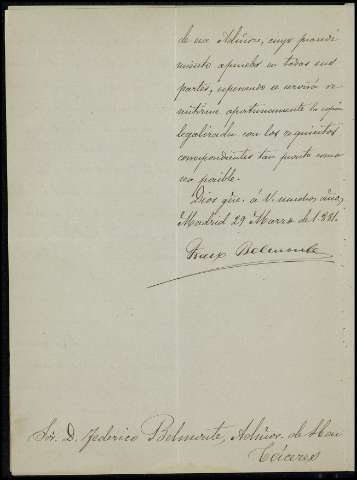 de esa Admon, cuyo procedi-
miento apruebo en todas sus
partes, esperando se servirá re-
mitirme oportunamente la copia
legalizada con los requisitos
correspondientes tan pronto como
sea posible.
Dios gue. á V. muchos años,
Madrid 29 Marzo de 1881.
Belmonte
Sór. D. Federico Belmonte, Admor. de
Cáceres